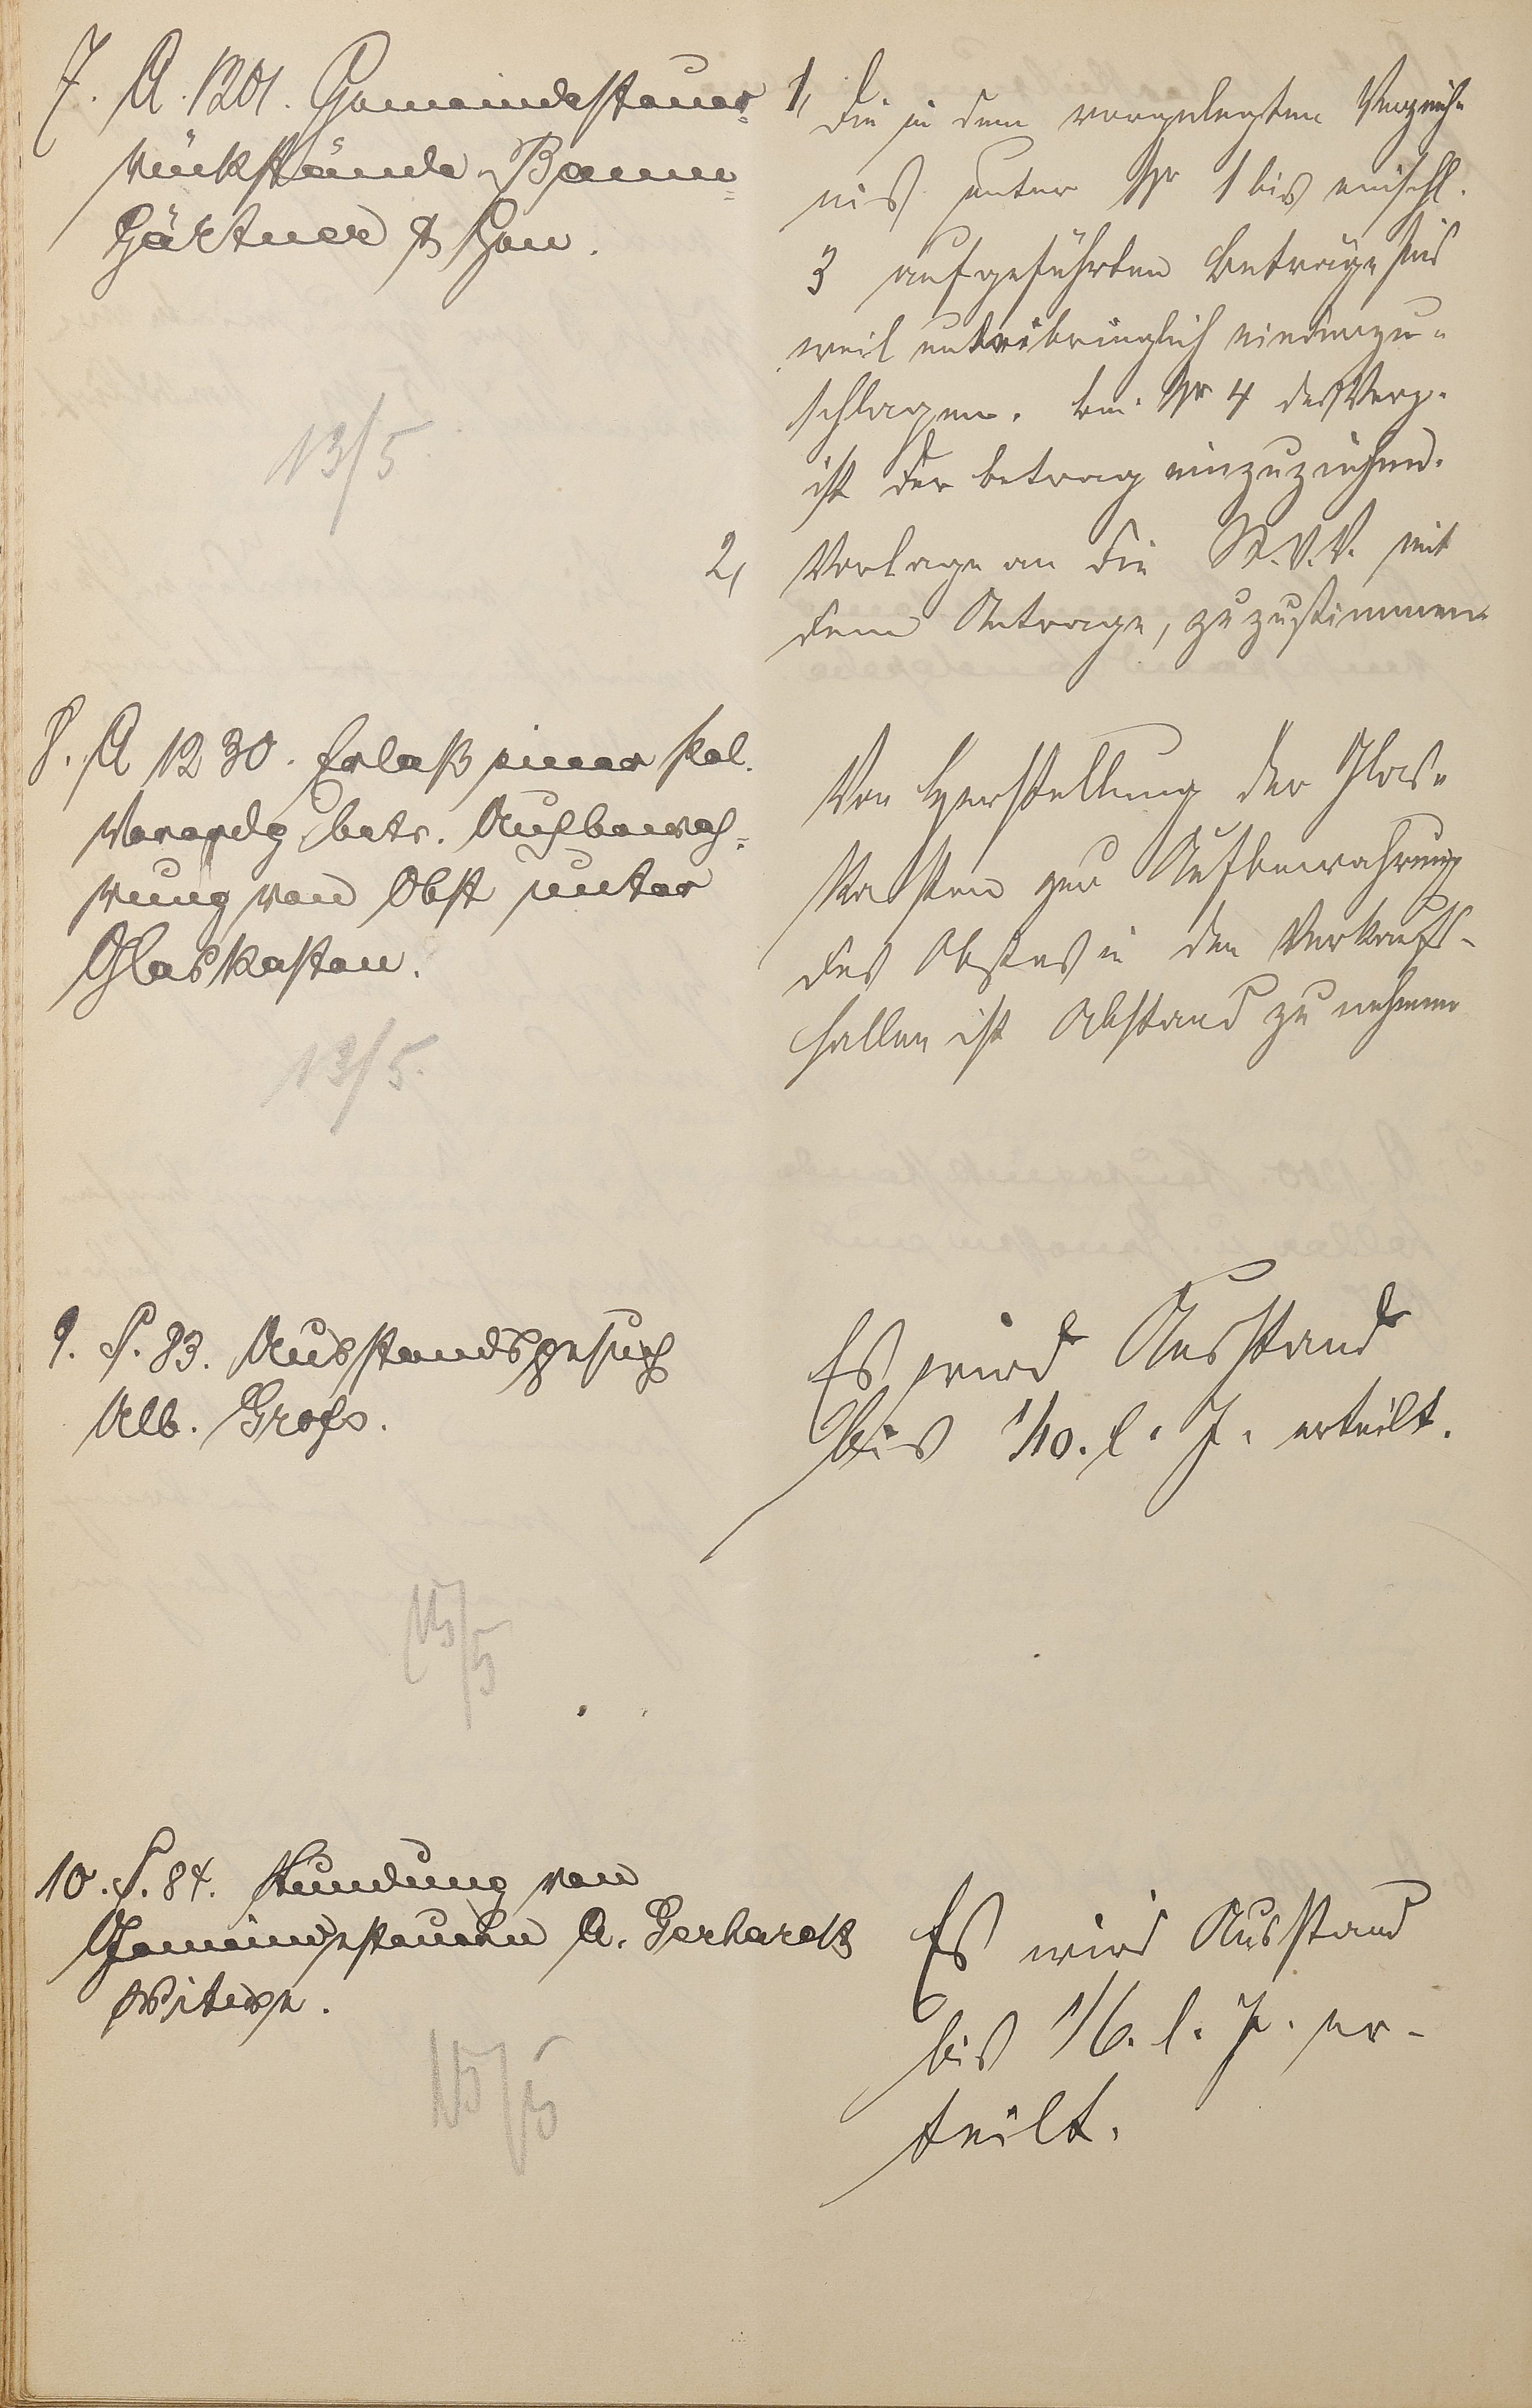 7. A. 1201. Gemeindesteuer=
rückstände Baum=
Gärtner & Gen.
13/5.
1, Die in dem vorgelegten Verzeich=
nis unter Nr 1 bis einschl.
3 aufgeführten Beträge sind
weil unbeibringlich niederzu=
schlagen. Bei Nr 4 des Verz.
ist der Betrag einzuziehen.
2, Vorlage an die St.V.V. mit
dem Antrage, zuzustimmen.
8. A 1230. Erlaß einer Pol.
Verordg betr. Aufbewah=
rung von Obst unter
Glaskasten.
13/5.
Von Herstellung der Glas=
kasten zur Aufbewahrung
des Obstes in den Verkaufs-
hallen ist Abstand zu nehmen
9. S. 83. Ausstandsgesuch
Alb. Groß.
15/5
Es wird Ausstand
bis 1/10. l. J. erteilt.
10. S. 84. Stundung von
Gemeindesteuern A. Gerhardt
Witwe.
15/5
Es wird Ausstand
bis 1/6. l. J. er-
teilt.